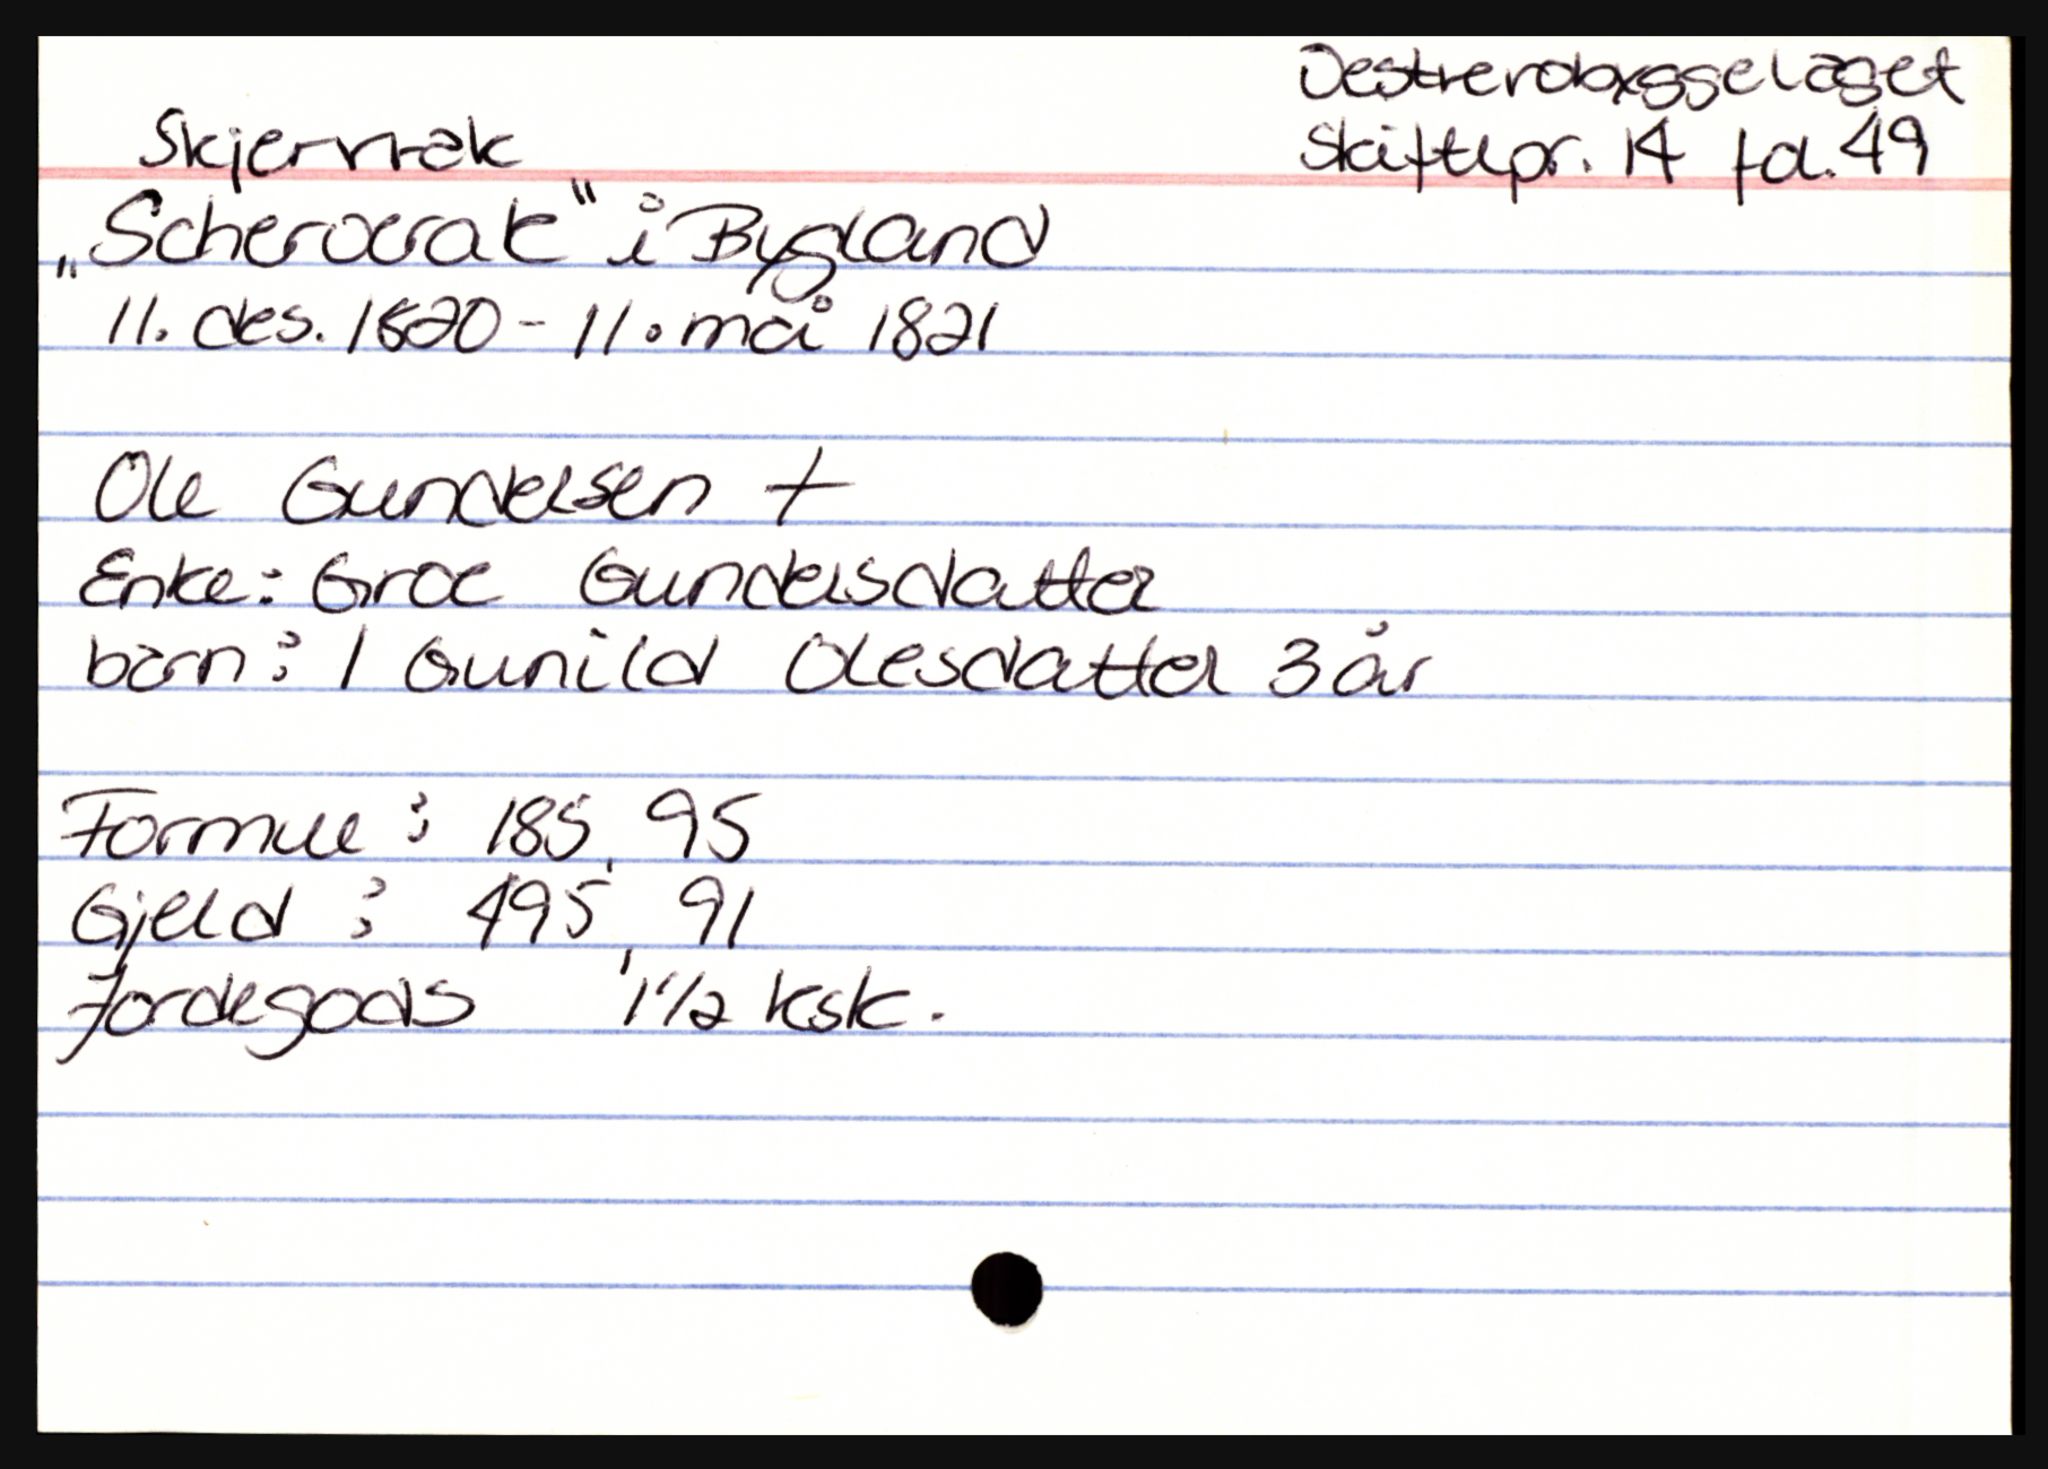 Oestrerobyggelaget
Skjervrak Skiftepr. 14 fol. 49
„Scheroerak“ i Bygland
11. des. 1820 - 11. mai 1821
Ole Gundersen +
Enke: Groe Gundersdatter
barn: 1 Gunild Olesdatter 3 år
Formue: 185, 95
Gjeld: 495, 91
Jordegods 1 1/2 ksk.